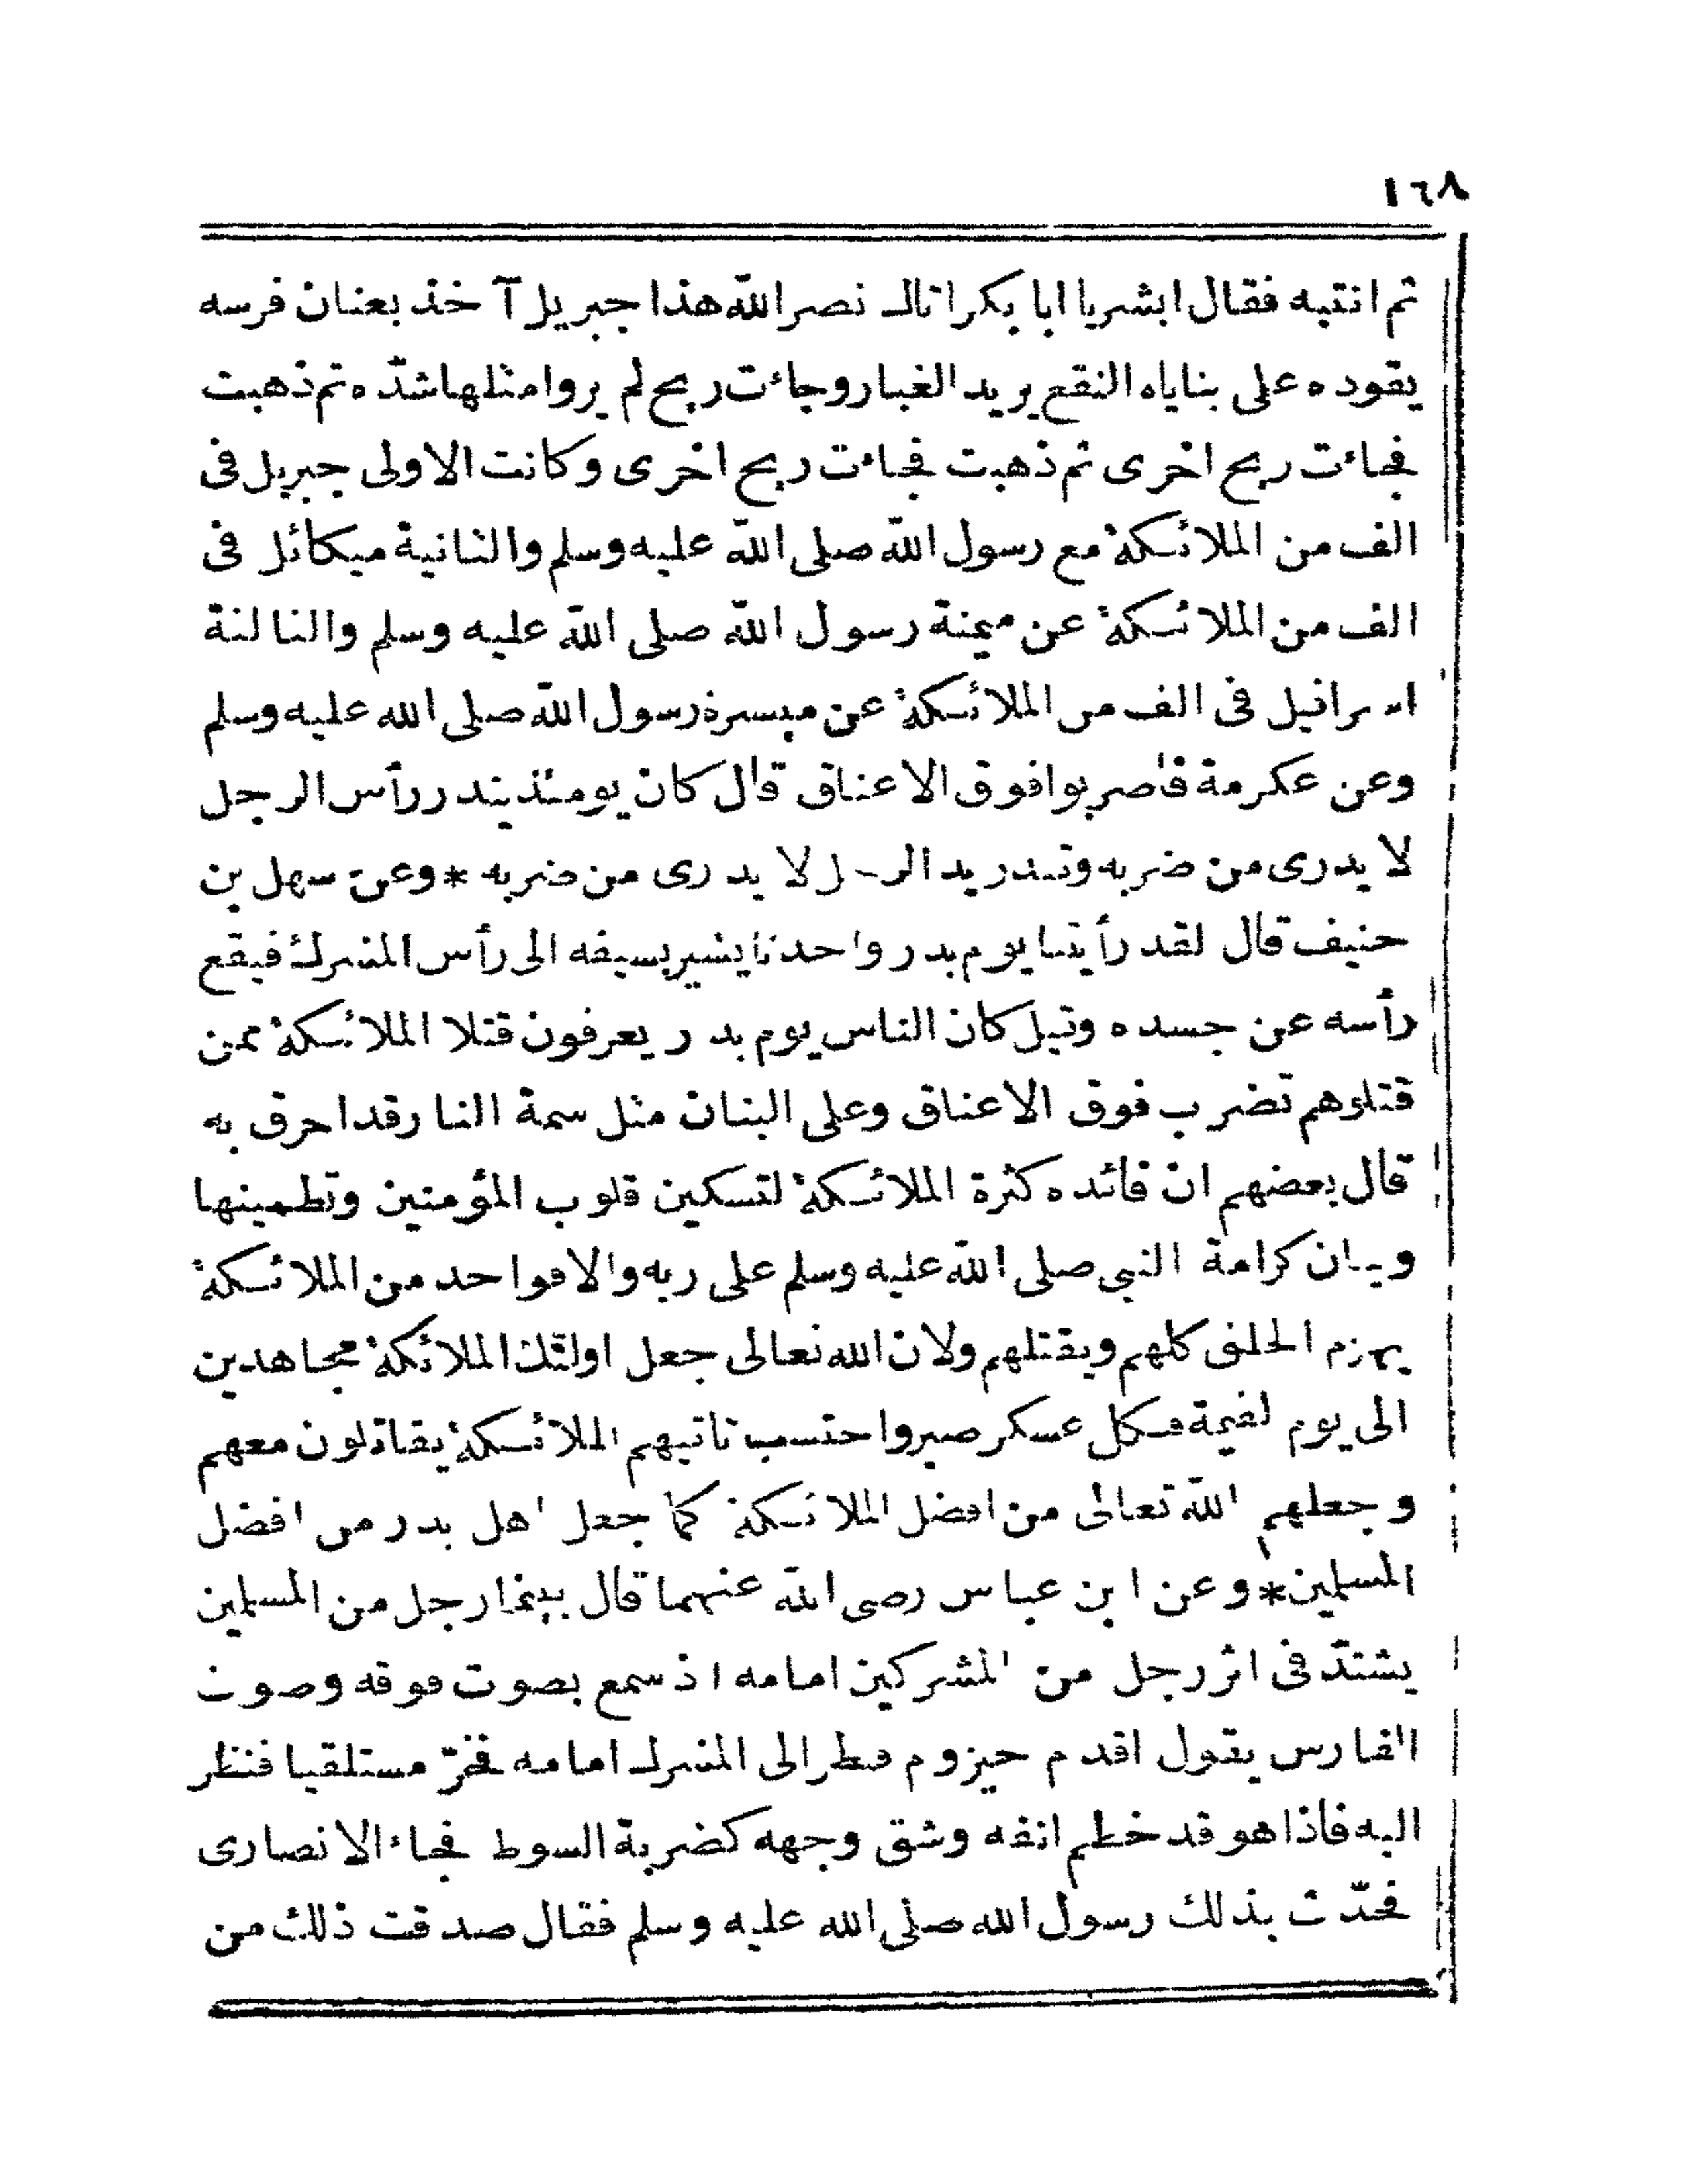 ١٦٨
ثم انتبه فقال ابشريا ابا بكر اتاك نصر الله هذا جبريل آخذ بعنان فرسه
يقوده على ثناياه النقع يريد الغبار وجاءت ريح لم يروا مثلها شدّه ثم ذهبت
فجاءت ريح اخرى ثم ذهبت فجاءت ريح اخرى وكانت الاولى جبريل فى
الف من الملائكة مع رسول الله صلى الله عليه وسلم والثانية ميكائل فى
الف من الملائكة عن ميمنة رسول الله صلى الله عليه وسلم والثالثة
اسرافيل فى الف من الملائكة عن ميسرة رسول الله صلى الله عليه وسلم
وعن عكرمة فاضربوا فوق الاعناق قال كان يومئذ يندر رأس الرجل
لا يدرى من ضربه وتندر يد الرجل لا يدرى من ضربه * وعن سهل بن
حنيف قال لقد رأيتنا يوم بدر واحدنا يشير بسيفه الى رأس المشرك فيقع
رأسه عن جسده وقيل كان الناس يوم بدر يعرفون قتلا الملائكة ممن
قتلوهم تضرب فوق الاعناق وعلى البنان مثل سمة النار قد احرق به
قال بعضهم ان فائده كثرة الملائكة لتسكين قلوب المؤمنين وتطمينها
وبيان كرامة النبى صلى الله عليه وسلم على ربه والا فواحد من الملائكة
يهزم الخلق كلهم ويقتلهم ولان الله تعالى جعل اولئك الملائكة مجاهدين
الى يوم القيمة فكل عسكر صبروا حتسب تاتيهم الملائكة يقاتلون معهم
وجعلهم الله تعالى من افضل الملائكة كما جعل اهل بدر من افضل
المسلمين * وعن ابن عباس رضى الله عنهما قال بينما رجل من المسلمين
يشتدّ فى اثر رجل من المشركين امامه اذ سمع بصوت فوقه وصوت
الفارس يقول اقدم حيزوم فنظر الى المشرك امامه فخرّ مستلقيا فنظر
اليه فاذا هو قد خطم انفه وشق وجهه كضربة السوط فجاء الانصارى
فحدّث بذلك رسول الله صلى الله عليه وسلم فقال صدقت ذلك من